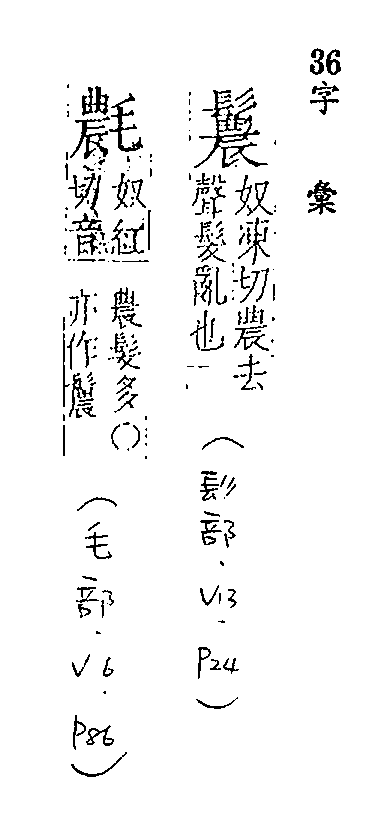 36字彙
鬞
奴凍切農去
聲髮亂也
(髟部.V13.P24)
奴紅
切音
農髮多○
亦作鬞
(毛部.V6.P86)